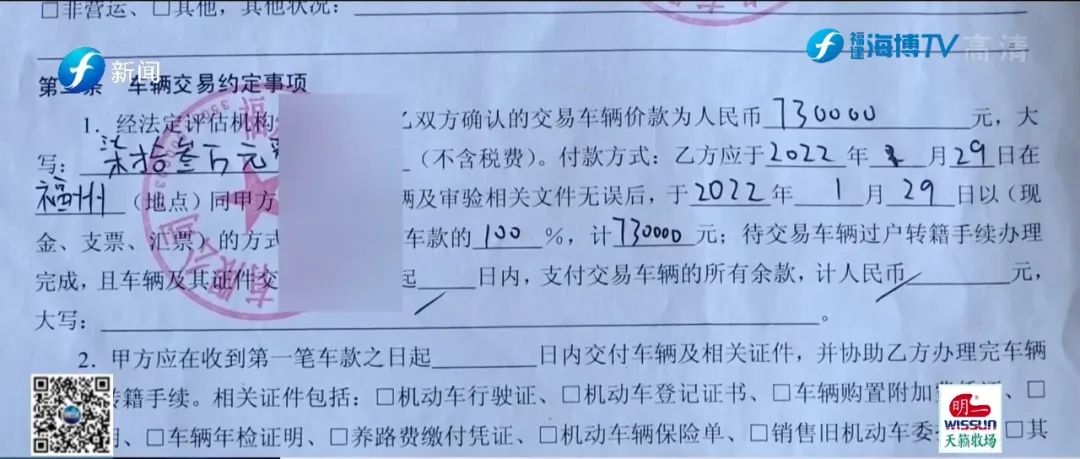 □非营运、□其他，其他状况：
新闻
福建海博TV 高清
第二条 车辆交易约定事项
1. 经法定评估机构 乙双方确认的交易车辆价款为人民币 730000 元，大
写：柒拾叁万元 （不含税费）。付款方式：乙方应于2022年 月29日在
福州（地点）同甲方 辆及审验相关文件无误后，于2022年1月29日以（现
金、支票、汇票）的方式 车款的100%，计730000元；待交易车辆过户转籍手续办理
完成，且车辆及其证件交 起 日内，支付交易车辆的所有余款，计人民币 元，
大写： 。
2. 甲方应在收到第一笔车款之日起 日内交付车辆及相关证件，并协助乙方办理完车辆
转籍手续。相关证件包括：□机动车行驶证、□机动车登记证书、□车辆购置附加费 、□
、□车辆年检证明、□养路费缴付凭证、□机动车保险单、□销售旧机动车委 □其
明一
WISSUN
天籁牧场